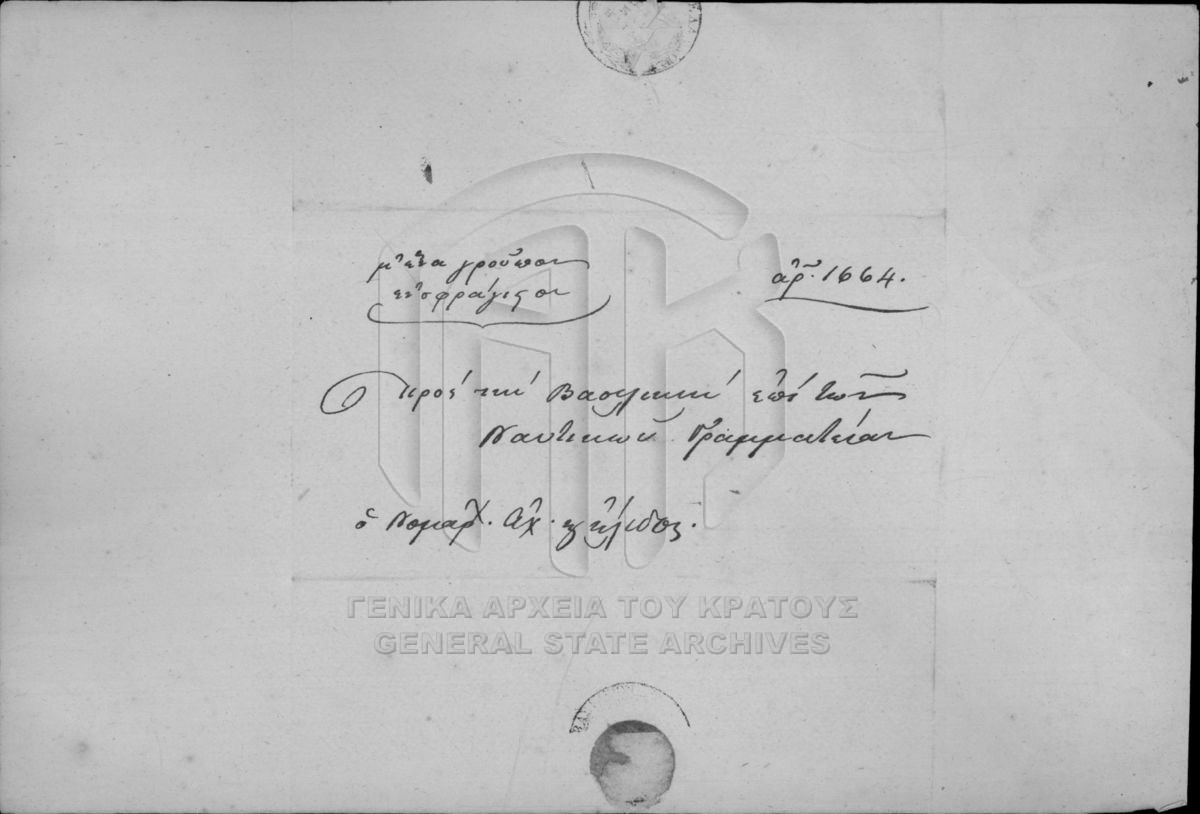 μ' ἕνα γροῦπον
ἐνσφράγιστον
ἀρ. 1664.
Πρὸς τὴν Βασιλικὴν ἐπὶ τῶν
Ναυτικῶν Γραμματείαν
ὁ Νομάρχ. Ἀχ. ἤλιδος.
ΓΕΝΙΚΑ ΑΡΧΕΙΑ ΤΟΥ ΚΡΑΤΟΥΣ
GENERAL STATE ARCHIVES